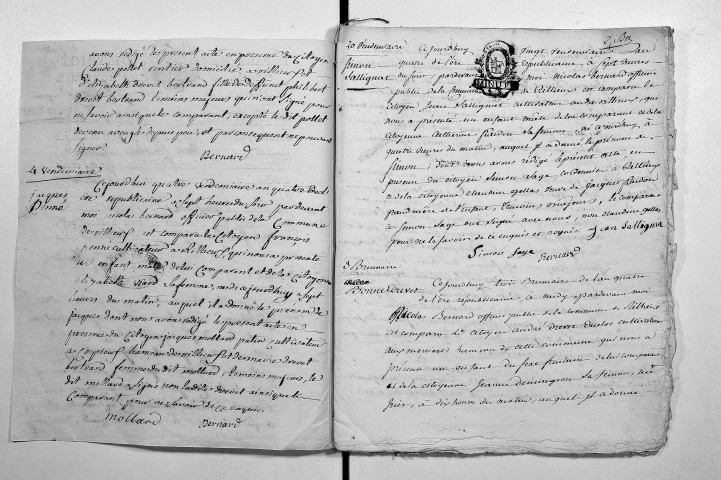 avons rédigé le present acte en presence du Citoyen
Claude pollet rentier domicilié a rillieux
d'elizabeth drevet bertrand fille de deffunt philibert
drevet bertrand temoins majeurs qui n'ont signé pour
ne savoir ainsi que le comparant, excepté le dit pollet
devenu aveugle depuis peu et par consequent ne pouvant
signer
Bernard
4 vendemiaire
jacques
penné
Cejourdhui quatre vendemiaire an quatre de
ere republicaine a sept heures du soir par devant
moi nicolas bernard officier public de la Commune
de rillieux est comparu le Citoyen françois
penné cultivateur a Rillieux qui nous a presenté
un enfant male de lui Comparant et de la Citoyenne
Elizabeth sa femme, né cejourdhuy a sept
heures du matin, auquel il a donné le prenom de
jacques dont nous avons redigé le present acte en
presence du Citoyen jacques mollard patin cultivateur
a hameau de rillieux et de marie drevet
bertrand femme du dit mollard, temoins majeurs, le
dit mollard signé non ladite drevet ainsi que le
Comparant pour ne savoir de ce enquis
mollard
Bernard
20 Vendemiaire
Simon
Sallignat
Cejourdhuy vingt vendemiaire an
quatre de l'ere republicaine à sept heures
du soir, pardevant moi Nicolas Bernard officier
public de la commune de Rillieux est comparu le
Citoyen Jean Sallignat cultivateur audit rillieux, qui
nous a presenté un enfant male de lui comparant et de la
Citoyenne Catherine sa femme né cejourdhuy à
quatre heures du matin, auquel il a donné le prenom de
Simon dont nous avons redigé le présent acte en
presence du citoyen Simon Saye cordonnier à Rillieux
et de la citoyenne claudine gollas veuve de Jacques
grandmere de l'enfant temoins majeurs, le comparant
et Simon Saye ont signé avec nous, non claudine gollas
pour ne le savoir de ce enquis et requis. jean Sallignat
Simon Saye
Bernard
3 Brumaire
Cejourdhuy trois Brumaire de l'an quatre
de l'ère républicaine, à midy pardevant moi
Nicolas Bernard officier public de la commune de Rillieux
est comparu le citoyen andré drevet cultivateur
aux mercieres hameau de cette commune qui nous a
presenté un enfant du sexe feminin de lui comparant
et de la citoyenne Jeanne sa femme, né
hier, à dix heures du matin, auquel il a donné